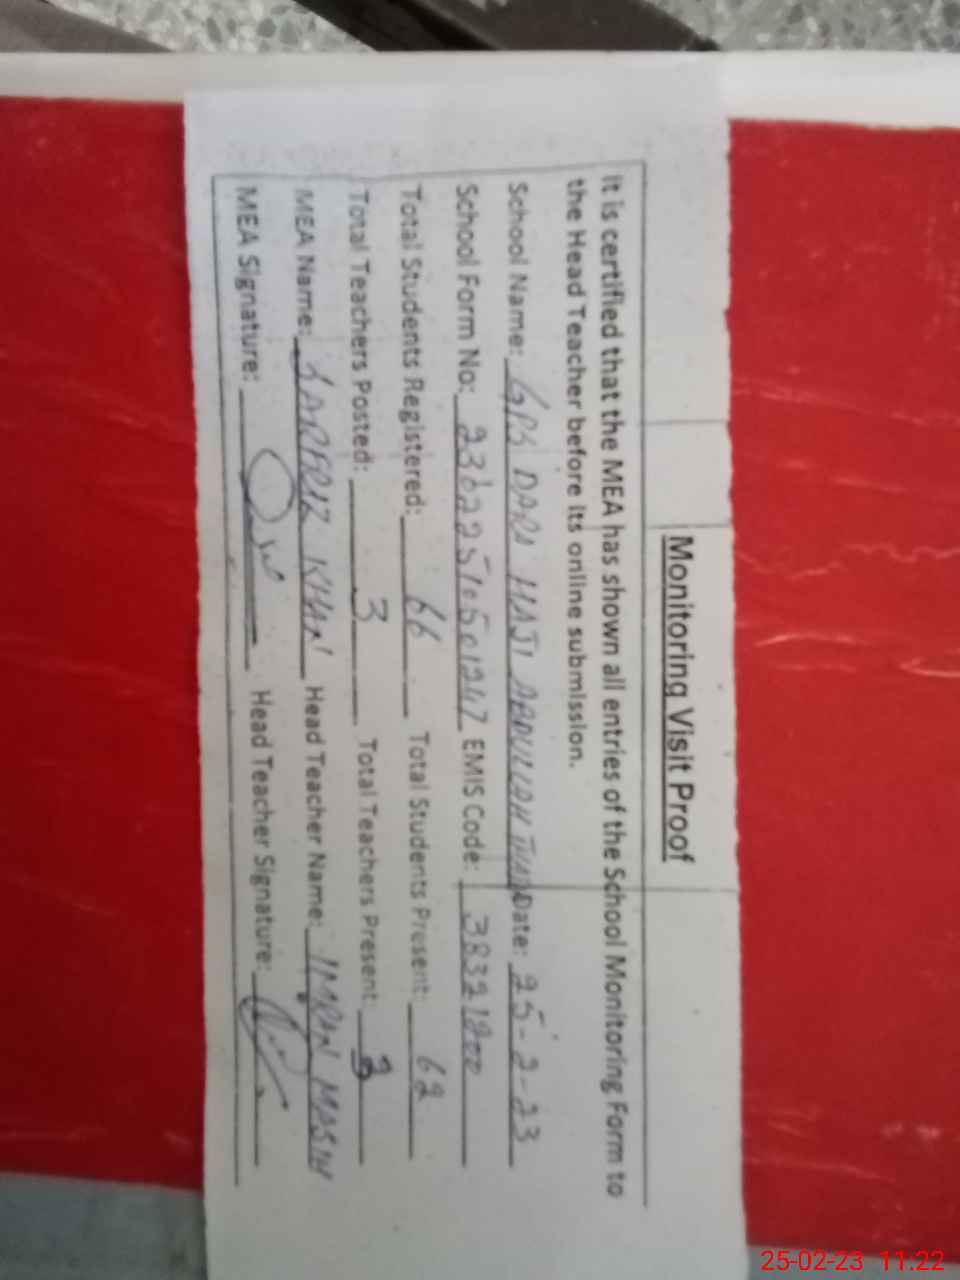 Monitoring Visit Proof
It is certified that the MEA has shown all entries of the School Monitoring Form to
the Head Teacher before its online submission.
School Name: GPS DARA HAJI ABDULLAH Date: 25-2-23
School Form No: EMIS Code:
Total Students Registered: 66 Total Students Present: 62
Total Teachers Posted: 3 Total Teachers Present: 3
MEA Name: KHAN Head Teacher Name: IMRAN MASIH
MEA Signature: Head Teacher Signature:
25-02-23 11:22